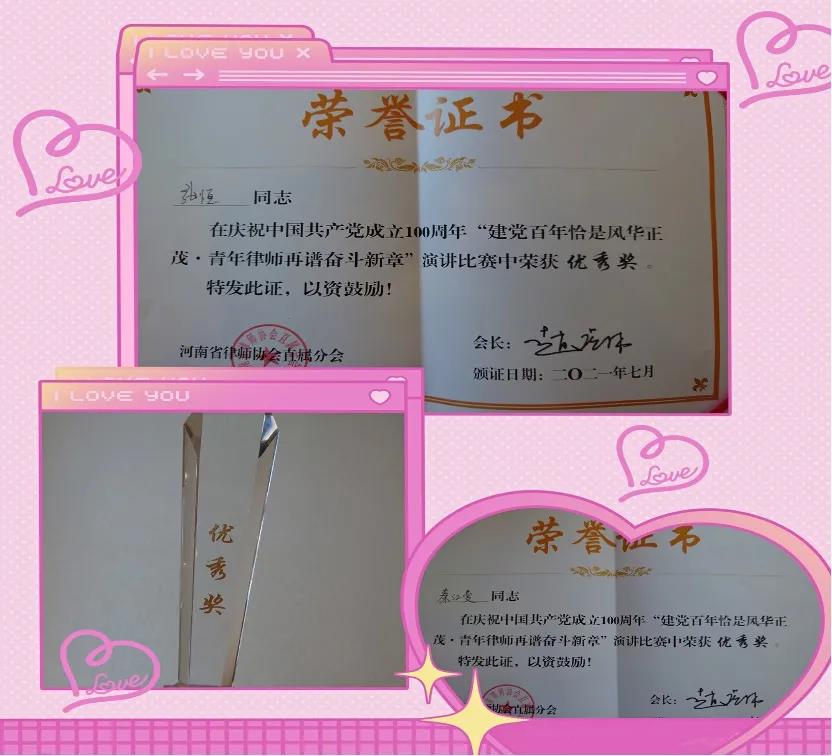 I LOVE YOU X
荣誉证书
张恒 同志
在庆祝中国共产党成立100周年“建党百年恰是风华正
茂·青年律师再谱奋斗新章”演讲比赛中荣获 优秀奖 。
特发此证，以资鼓励！
河南省律师协会直属分会
会长：
颁证日期：二〇二一年七月
I LOVE YOU
优秀奖
荣誉证书
同志
在庆祝中国共产党成立100周年“建党百年恰是风华正
茂·青年律师再谱奋斗新章”演讲比赛中荣获 优秀奖 。
特发此证，以资鼓励！
师协会直属分会
会长：
Love
Love
Love
Love